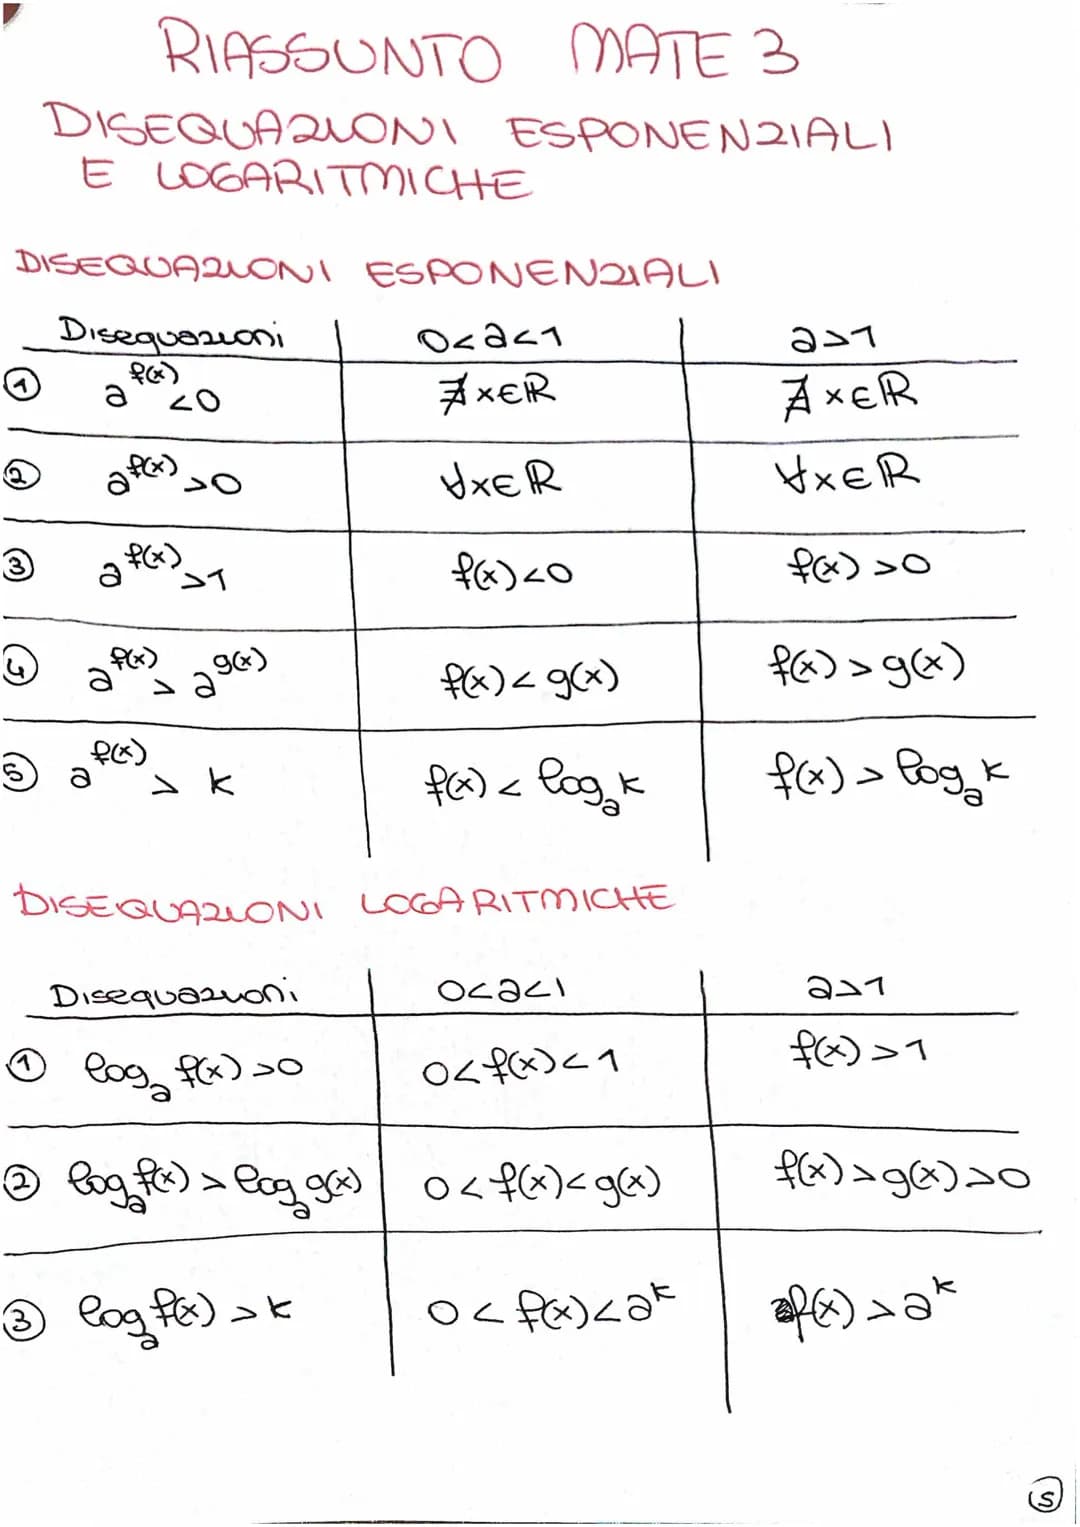 RIASSUNTO MATE 3
DISEQUAZIONI ESPONENZIALI
E LOGARITMICHE
DISEQUAZIONI ESPONENZIALI
Disequazioni 0<a<1 a>1
① a^f(x) <0 ∄x∈ℝ ∄x∈ℝ
② a^f(x) >0 ∀x∈ℝ ∀x∈ℝ
③ a^f(x) >1 f(x)<0 f(x)>0
④ a^f(x) > a^g(x) f(x)<g(x) f(x)>g(x)
⑤ a^f(x) > k f(x)< logₐk f(x)> logₐk
DISEQUAZIONI LOGARITMICHE
Disequazioni 0<a<1 a>1
① logₐ f(x)>0 0<f(x)<1 f(x)>1
② logₐ f(x) > logₐ g(x) 0<f(x)<g(x) f(x)>g(x)>0
③ logₐ f(x) >k 0<f(x)<a^k f(x)>a^k
⑤